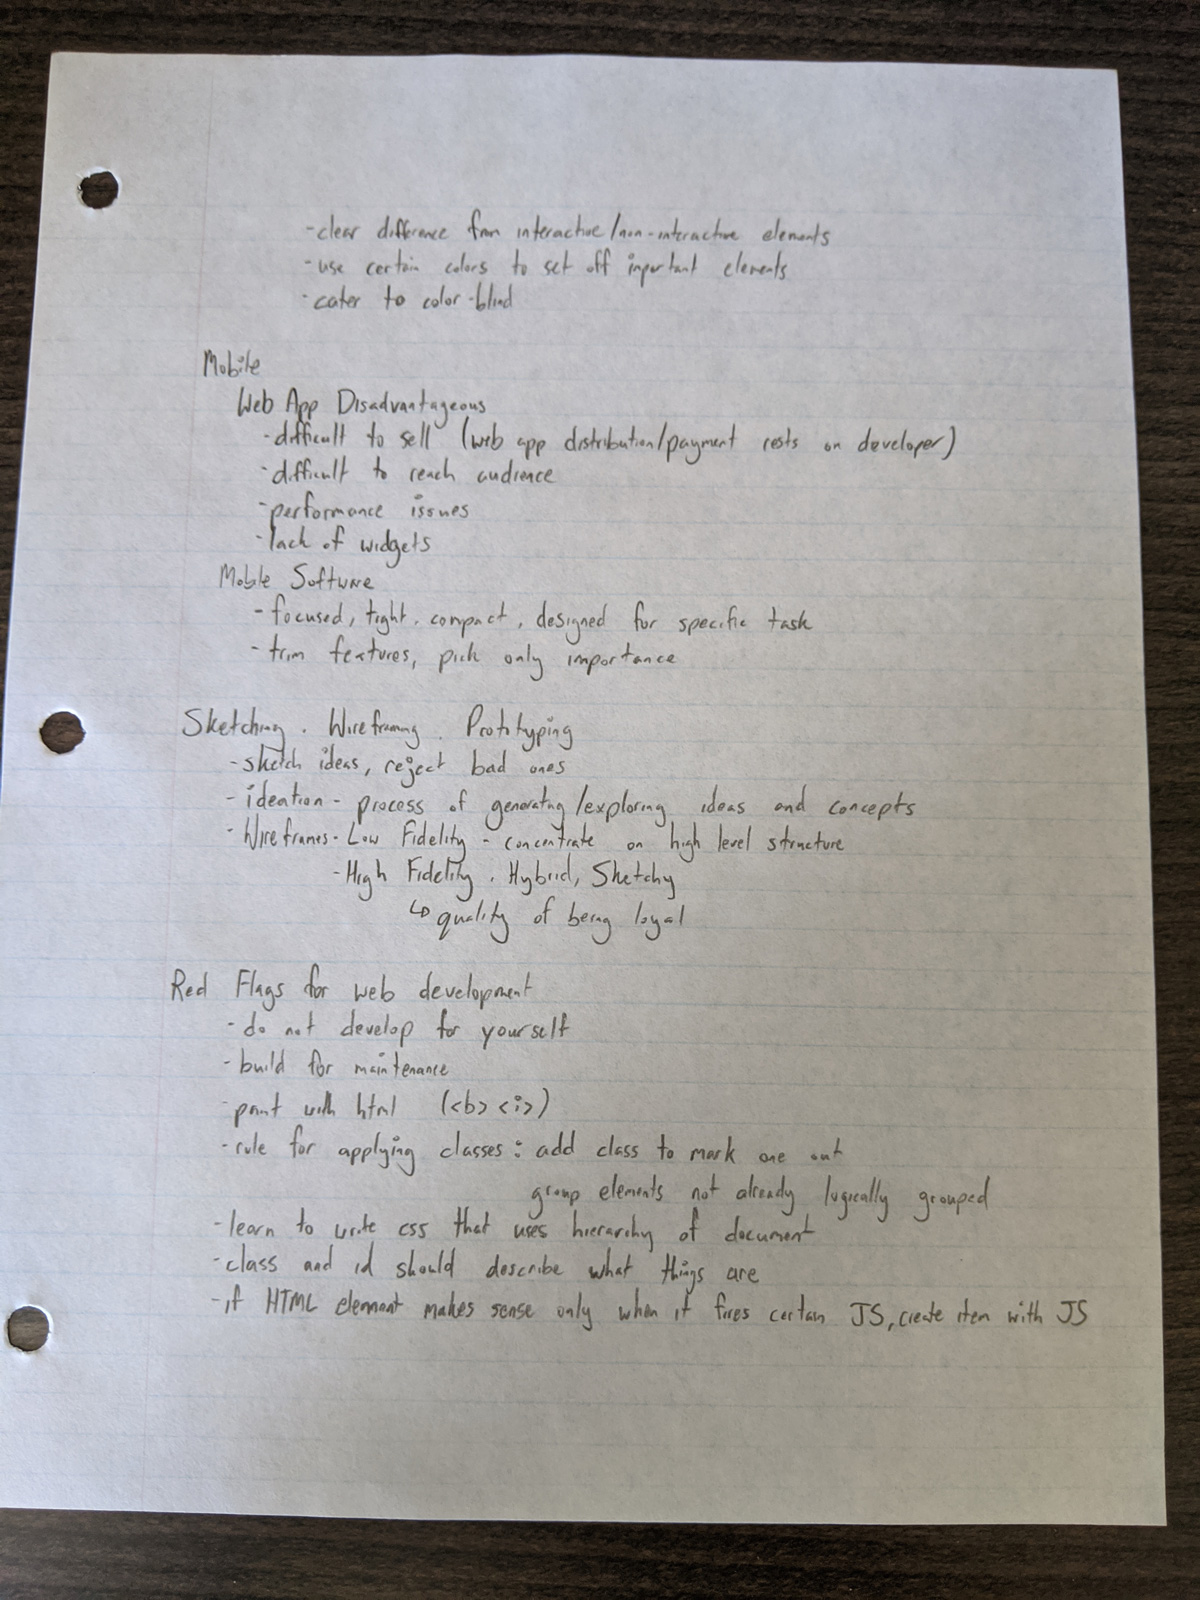 - clear difference from interactive/non-interactive elements
- use certain colors to set off important elements
- cater to color-blind
Mobile
Web App Disadvantageous
- difficult to sell (web app distribution/payment rests on developer)
- difficult to reach audience
- performance issues
- lack of widgets
Mobile Software
- focused, tight, compact, designed for specific task
- trim features, pick only importance
Sketching, Wireframing, Prototyping
- sketch ideas, reject bad ones
- ideation - process of generating/exploring ideas and concepts
- Wireframes - Low Fidelity - concentrate on high level structure
- High Fidelity, Hybrid, Sketchy
↳ quality of being loyal
Red Flags for web development
- do not develop for yourself
- build for maintenance
- paint with html (<b> <i>)
- rule for applying classes: add class to mark one out
group elements not already logically grouped
- learn to write css that uses hierarchy of document
- class and id should describe what things are
- if HTML element makes sense only when it fires certain JS, create item with JS